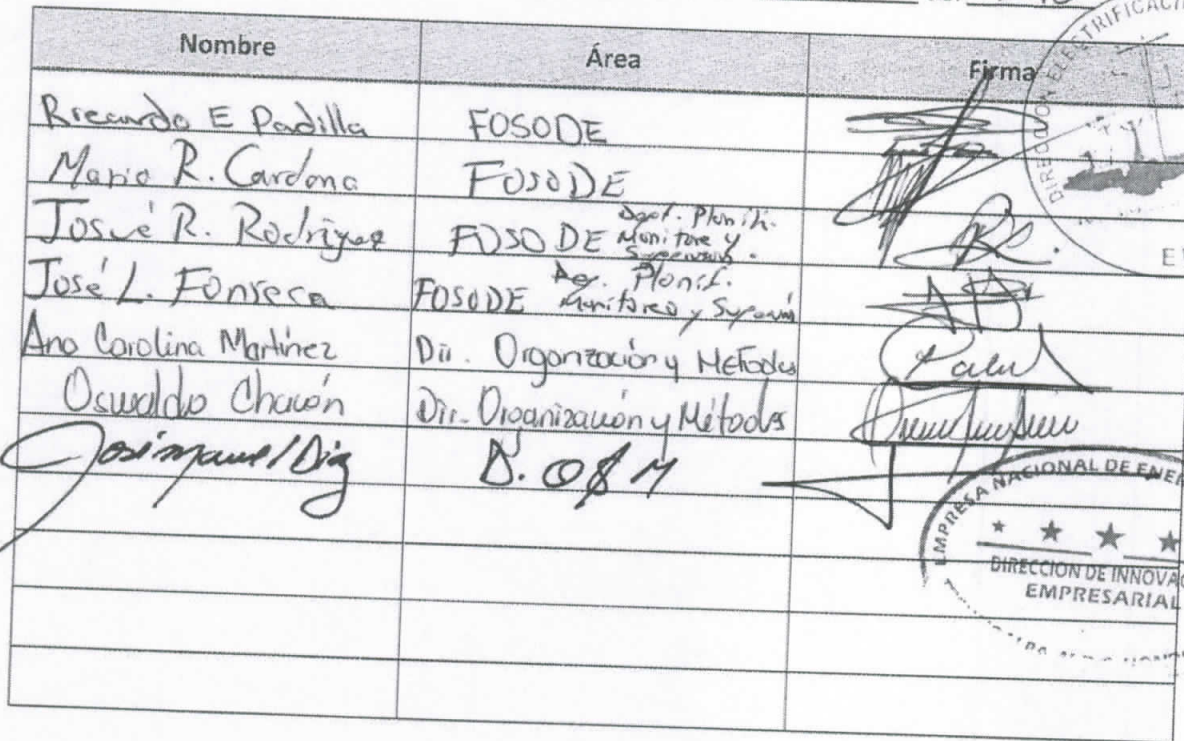 Nombre Área Firma
Ricardo E Padilla FOSODE
Mario R. Cardona FOSODE
Josué R. Rodríguez FOSODE Dept. Planifi.
Monitoreo y
Supervisión.
José L. Fonseca FOSODE Dep. Planif.
Monitoreo y
Ana Carolina Martínez Dir. Organización y Métodos
Oswaldo Chacón Dir. Organización y Métodos
José manuel Diaz D. O & M
EMPRESA NACIONAL DE ENER
DIRECCIÓN DE INNOVAC
EMPRESARIAL
DIRECCIÓN ELECTRIFICACI